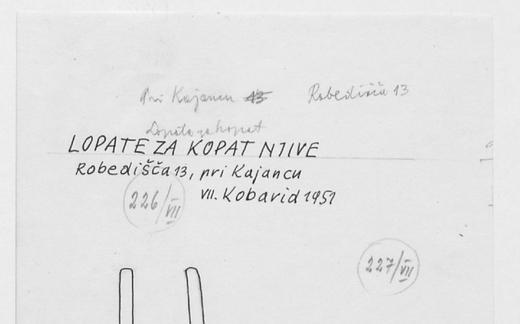 Pri Kajancu 13 Robedišča 13
Lopate za kopat
LOPATE ZA KOPAT NJIVE
Robedišča 13, pri Kajancu
VII. Kobarid 1951
226/VII
227/VII